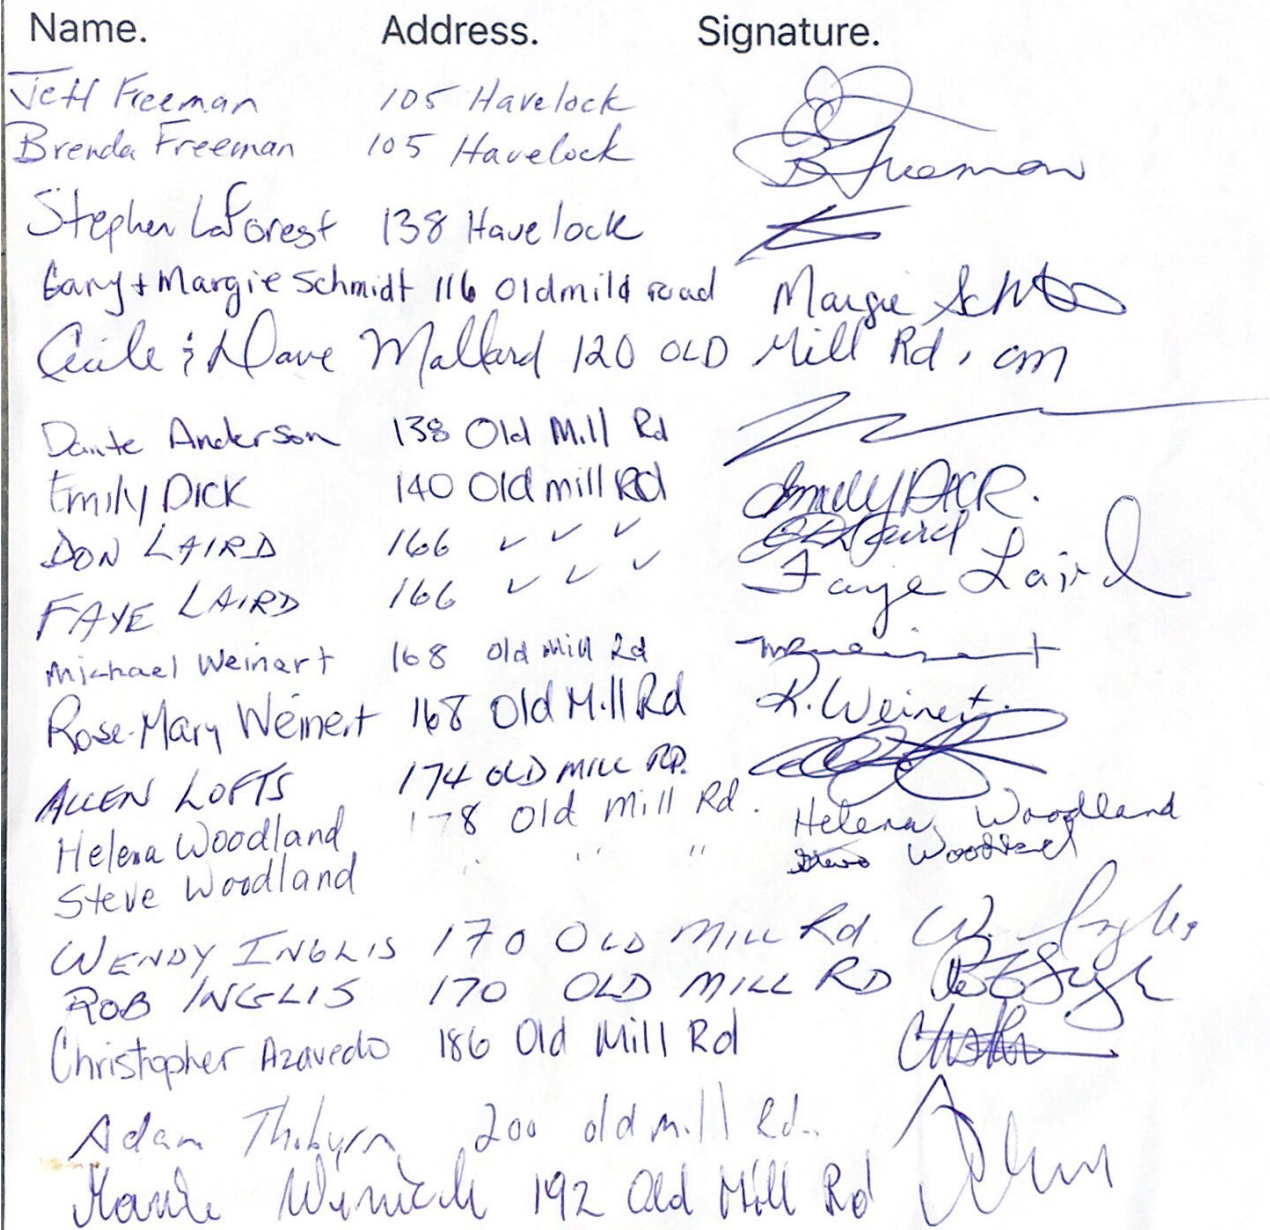 Name. Address. Signature.
Jeff Freeman 105 Havelock
Brenda Freeman 105 Havelock B Freeman
Stephen LaForest 138 Havelock
Gary + Margie Schmidt 116 oldmild road Margie
Cecile & Dave Mallard 120 OLD Mill Rd. cm
Dante Anderson 138 Old Mill Rd
Emily DICK 140 Old mill Rd Emily DICK.
DON LAIRD 166 ✓ ✓ ✓ Laird
FAYE LAIRD 166 ✓ ✓ ✓ Faye Laird
Michael Weinert 168 old Mill Rd
Rose-Mary Weinert 168 Old Mill Rd R. Weinert.
ALLEN LOFTS 174 OLD MILL RD.
Helena Woodland 178 Old Mill Rd. Helena Woodland
Steve Woodland " " " Steve Woodland
WENDY INGLIS 170 OLD MILL Rd W. Inglis
ROB INGLIS 170 OLD MILL RD
Christopher Azavedo 186 Old Mill Rd
Adam Thoburn 200 old mill Rd.
192 Old Mill Rd